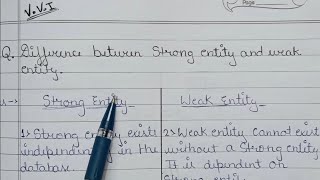 V.V.I
Page
Q. Difference between Strong entity and weak
entity.
Strong Entity
Weak Entity
1) Strong entity exists
independently in the
database.
2) Weak entity cannot exist
without a Strong entity
It is dependent on
Strong entity